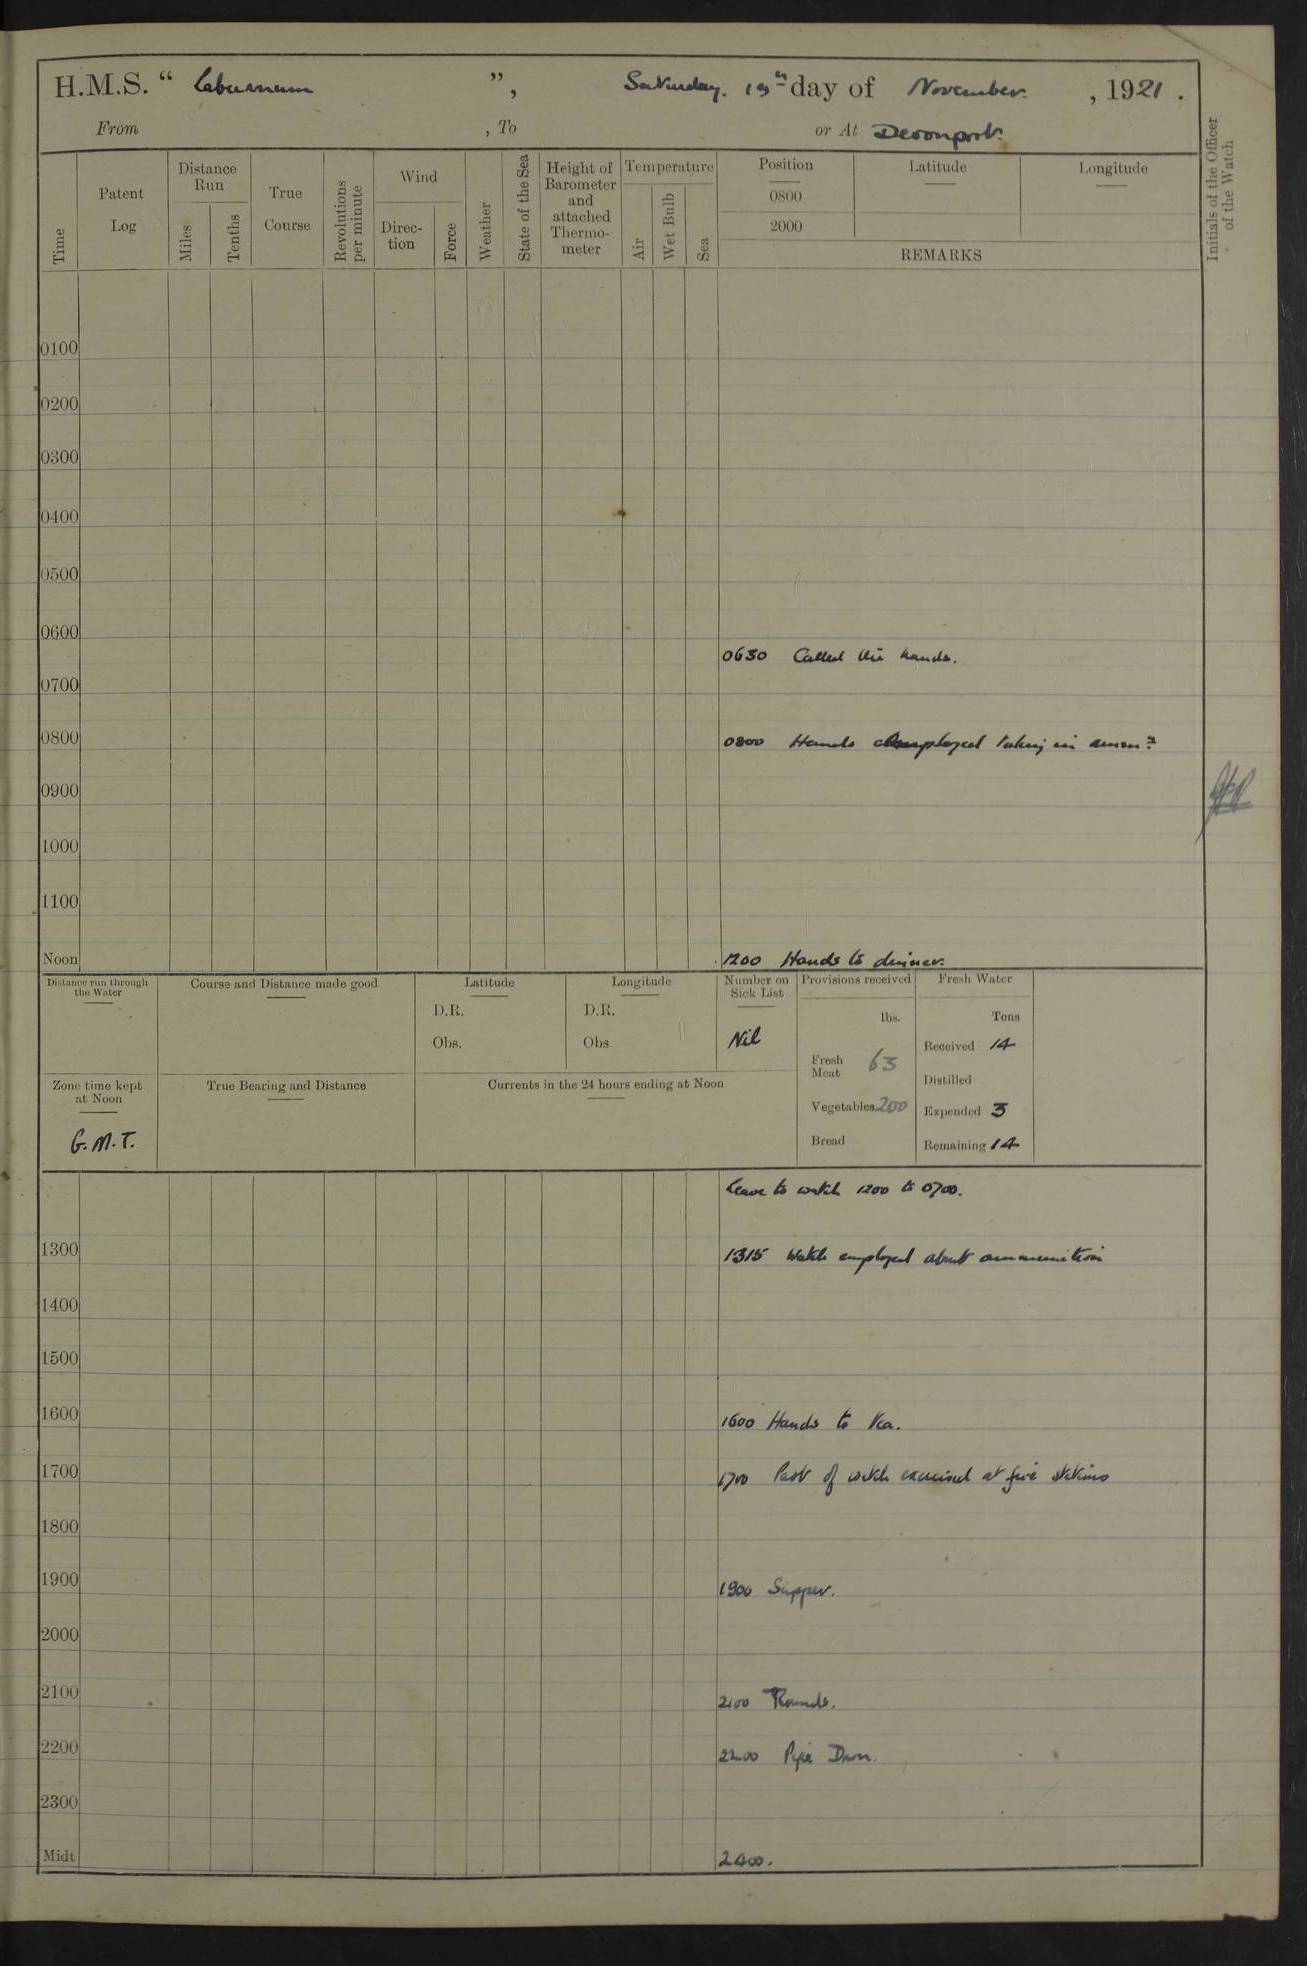 H.M.S. “ Laburnum ”, Saturday. 19th day of November. , 1921 .
From , To or At Devonport.
Time
Patent Log
Distance Run
Miles
Tenths
True Course
Revolutions per minute
Wind
Direc-
tion
Force
Weather
State of the Sea
Height of
Barometer
and
attached
Thermo-
meter
Temperature
Air
Wet Bulb
Sea
Position
0800
2000
Latitude
Longitude
REMARKS
Initials of the Officer
of the Watch
0100
0200
0300
0400
0500
0600
0630 Called the hands.
0700
0800
0800 Hands employed taking in ammn
0900
1000
1100
Noon
1200 Hands to dinner.
Distance run through
the Water
Course and Distance made good
Latitude
D.R.
Obs.
Longitude
D.R.
Obs
Number on
Sick List
Nil
Provisions received
lbs.
Fresh
Meat 63
Vegetables 200
Bread
Fresh Water
Tons
Received 14
Distilled
Expended 3
Remaining 14
Zone time kept
at Noon
G.M.T.
True Bearing and Distance
Currents in the 24 hours ending at Noon
Leave to watch 1200 to 0700.
1300
1315 Watch employed about ammunition
1400
1500
1600
1600 Hands to tea.
1700
1700 Part of watch exercised at fire stations
1800
1900
1900 Supper.
2000
2100
2100 Rounds.
2200
2200 Pipe Down.
2300
Midt
2400.